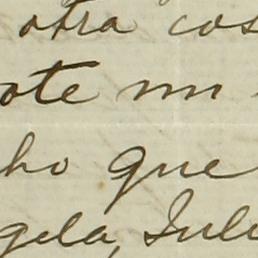 otra cos
ote mi
ho que
gela, Juli